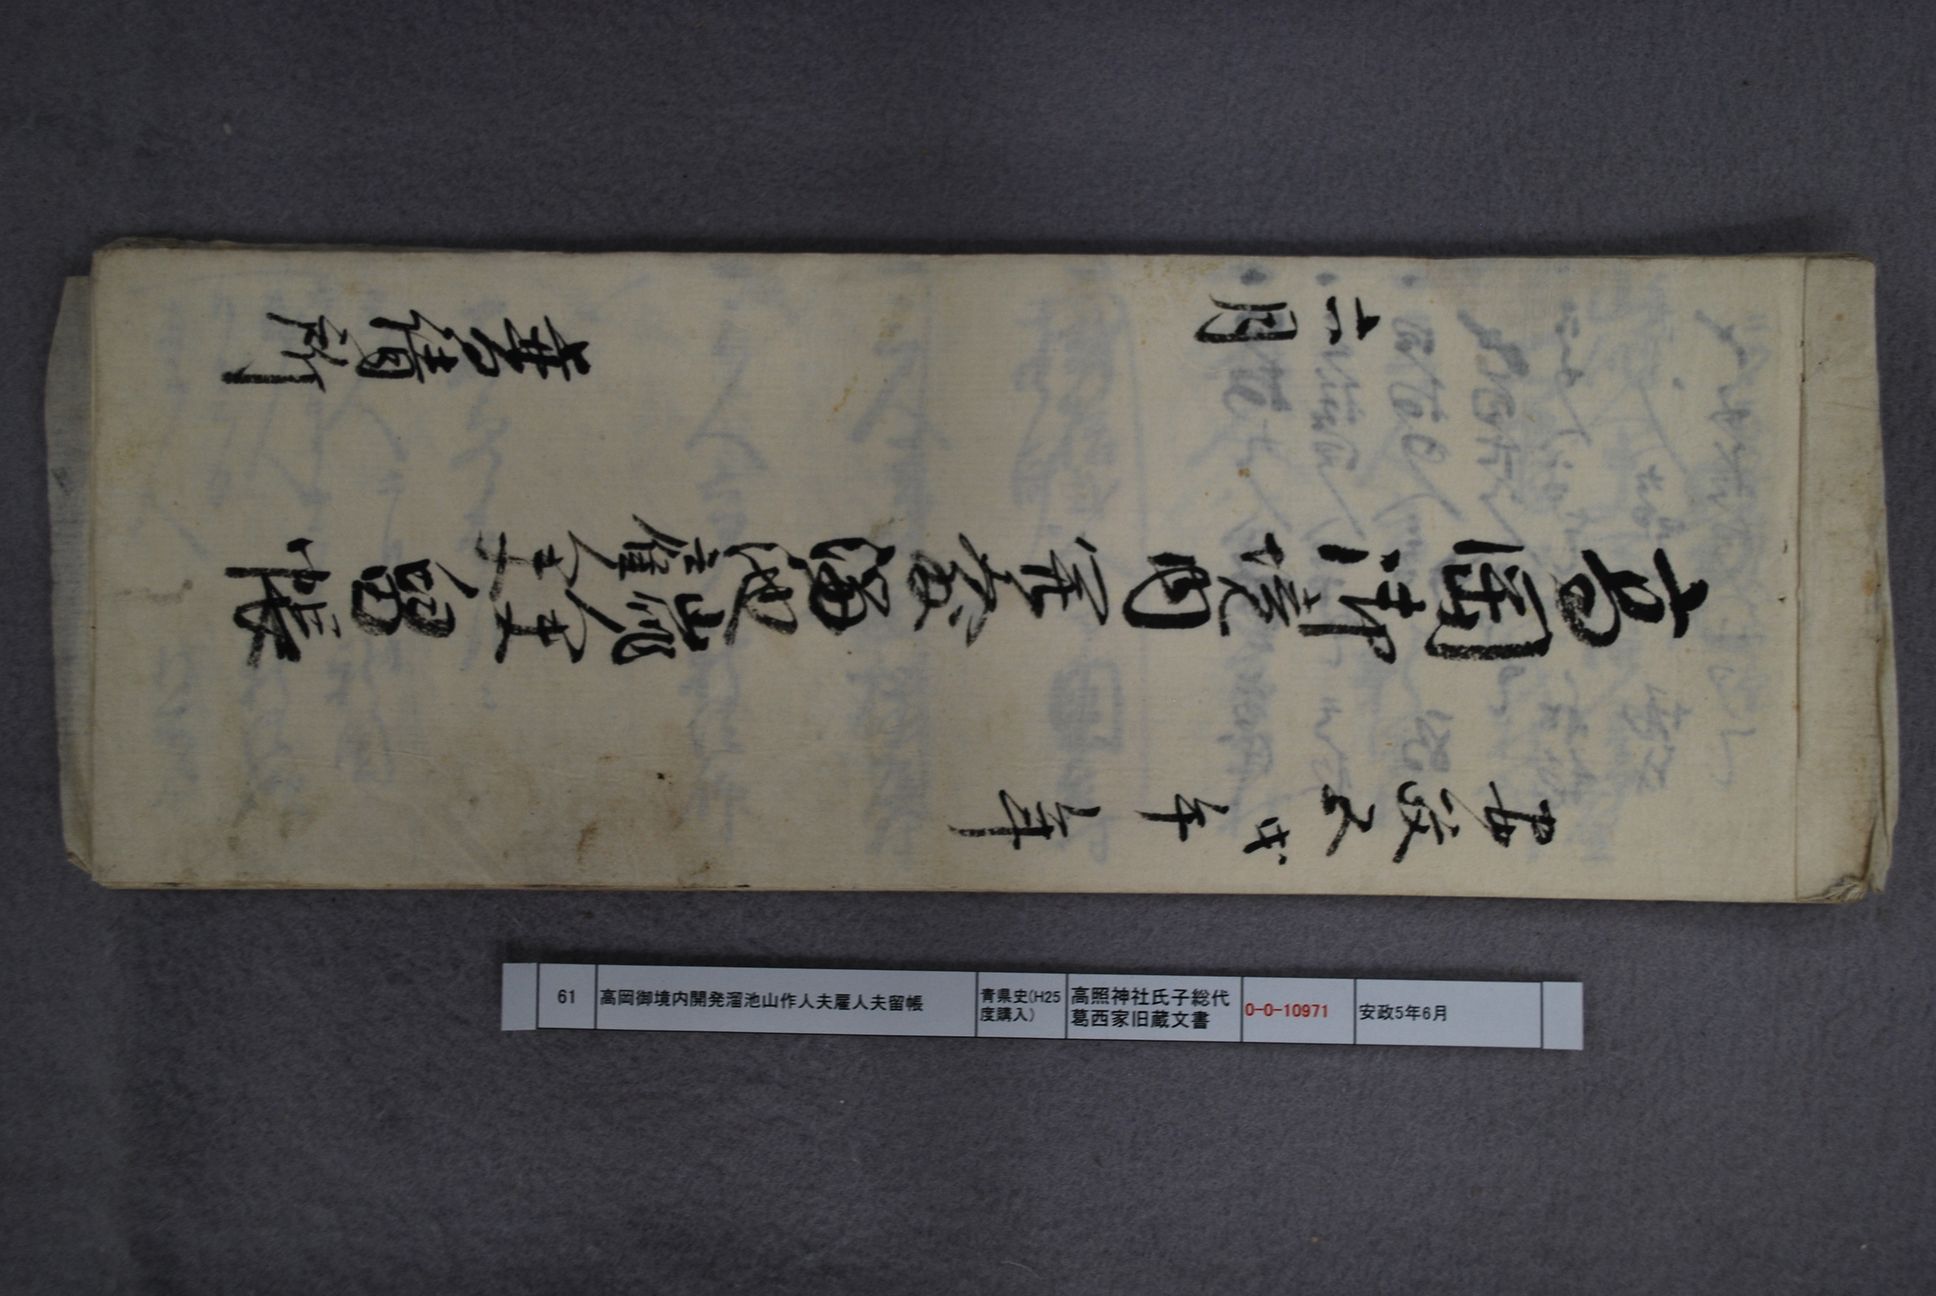 安政五戊午年
高岡御境内開発溜池山作人夫雇人夫留帳
六月
61
高岡御境内開発溜池山作人夫雇人夫留帳
青県史(H25
度購入)
高照神社氏子総代
葛西家旧蔵文書
0-0-10971
安政5年6月